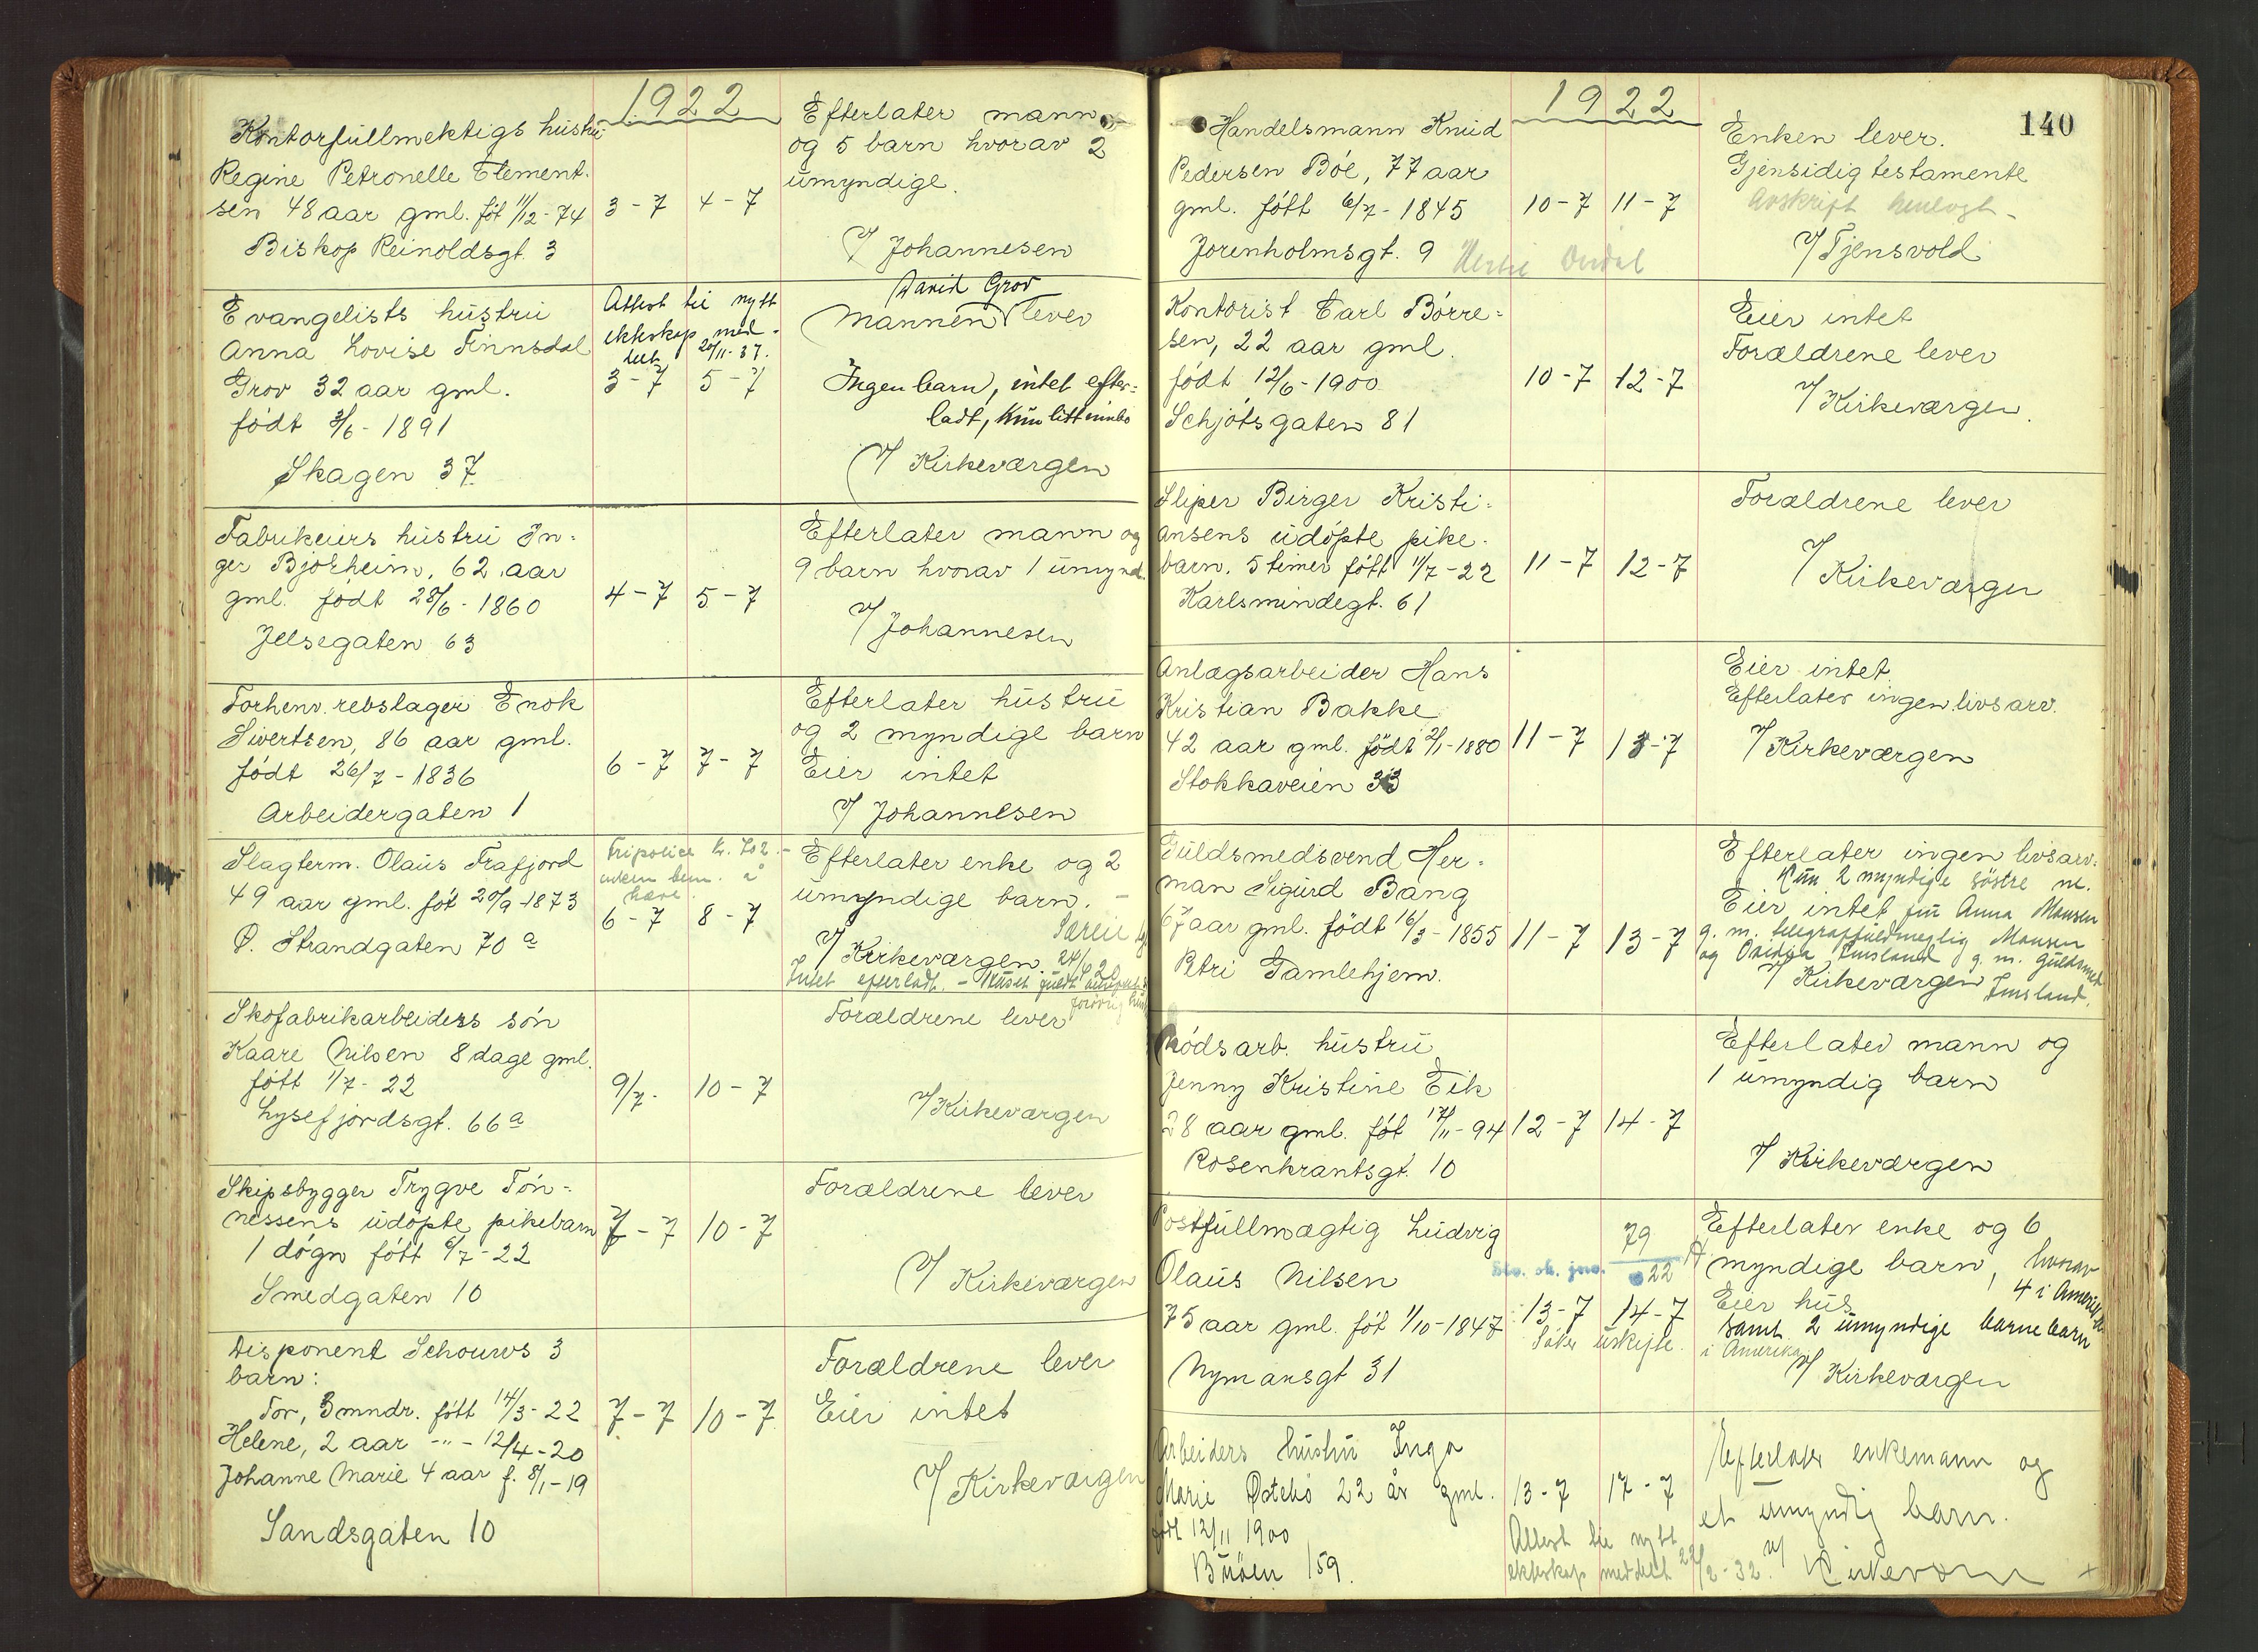 1922
Kontorfullmektigs hustru
Regine Petronelle Clement-
sen 48 aar gml. föt 11/12-74
Biskop Reinoldsgt. 3
3-7 4-7
Efterlater mann
og 5 barn hvorav 2
umyndige.
V/ Johannesen
Evangelists hustru
Anna Lovise Finnsdal
Grov 32 aar gml.
födt 3/6-1891
Skagen 37
Attest til nytt
ekteskap med-
delt 20/11-37.
3-7 5-7
David Grov
Mannen lever
Ingen barn, intet efter-
ladt, kun litt innbo
V/ Kirkeværgen
Fabrikeiers hustru In-
ger Bjorheim, 62 aar
gml. födt 28/6-1860
Jelsegaten 63
4-7 5-7
Efterlater mann og
9 barn hvorav 1 umynd.
V/ Johannesen
Forhenv. rebslager Enok
Sivertsen, 86 aar gml.
födt 26/7-1836
Arbeidergaten 1
6-7 7-7
Efterlater hustru
og 2 myndige barn
Eier intet
V/ Johannesen
Slagterm. Olaus Frafjord
49 aar gml. föt 20/9-1873
Ö. Strandgaten 70 a
Fripolice kr. 702.-
enken bem. å
hæve.
6-7 8-7
Efterlater enke og 2
umyndige barn.
V/ Kirkeværgen.
Intet efterladt. - Huset fuldt
Skofabrikarbeiders sön
Kaare Nilsen 8 dage gml.
fött 1/7-22
Lysefjordsgt. 66 a
9/7- 10-7
Forældrene lever
V/ Kirkeværgen
Skipsbygger Trygve Tön-
nessens udöpte pikebarn
1 dögn fött 6/7-22
Smedgaten 10
7-7 10-7
Forældrene lever
V/ Kirkeværgen
Disponent Schouws 3
barn:
Tor, 3 mndr. fött 14/3-22
Helene, 2 aar -"- 12/4-20
Johanne Marie 4 aar f. 8/1-19
Sandsgaten 10
7-7 10-7
Forældrene lever
Eier intet
V/ Kirkeværgen
1922
140
Handelsmann Knud
Pedersen Böe, 77 aar
gml. fött 6/7-1845
Jorenholmsgt. 9
10-7 11-7
Enken lever.
Gjensidig testamente
Avskrift henlagt-
V/ Tjensvold
Kontorist Carl Börre-
sen, 22 aar gml.
födt 12/6-1900
Schjötsgaten 81
10-7 12-7
Eier intet
Forældrene lever
V/ Kirkeværgen.
Sliper Birger Kristi-
ansens udöpte pike-
barn. 5 timer fött 11/7-22
Karlsmindegt. 61
11-7 12-7
Forældrene lever
V/ Kirkeværgen
Anlægsarbeider Hans
Kristian Bakke
42 aar gml. födt 2/1-1880
Stokkaveien 33
11-7 13-7
Eier intet
Efterlater ingen livsarv.
V/ Kirkeværgen
Guldsmedsvend Her-
man Sigurd Bang
67 aar gml. födt 16/3-1855
Petri Gamlehjem.
11-7 13-7
Efterlater ingen livsarv.
Kun 2 myndige söstre nl.
Eier intet fru Anna Monsen
g. m. telegraffuldmegtig Monsen
og Ovidia Imsland g. m. guldsmed
V/ Kirkeværgen Imsland.
Lödsarb. hustru
Jenny Kristine Eik
28 aar gml. föt 17/11-94
Rosenkrantsgt. 10
12-7 14-7
Efterlater mann og
1 umyndig barn
V/ Kirkeværgen
Postfullmægtig Ludvig
Olaus Nilsen
75 aar gml. föt 1/10-1847
Nymansgt 31
79
22
13-7 14-7
Söker uskifte.
Efterlater enke og 6
myndige barn, hvorav
4 i Amerika
Eier hus
samt 2 umyndige barnebarn
i Amerika
V/ Kirkeværgen
Arbeiders hustru Inga
Marie Östebö 22 år gml.
född 12/11 1900
Buöen 159.
13-7 17-7
Attest til nytt
ekteskap meddelt 22/2-32.
Efterlater enkemann og
et umyndig barn.
V/ Kirkeværgen